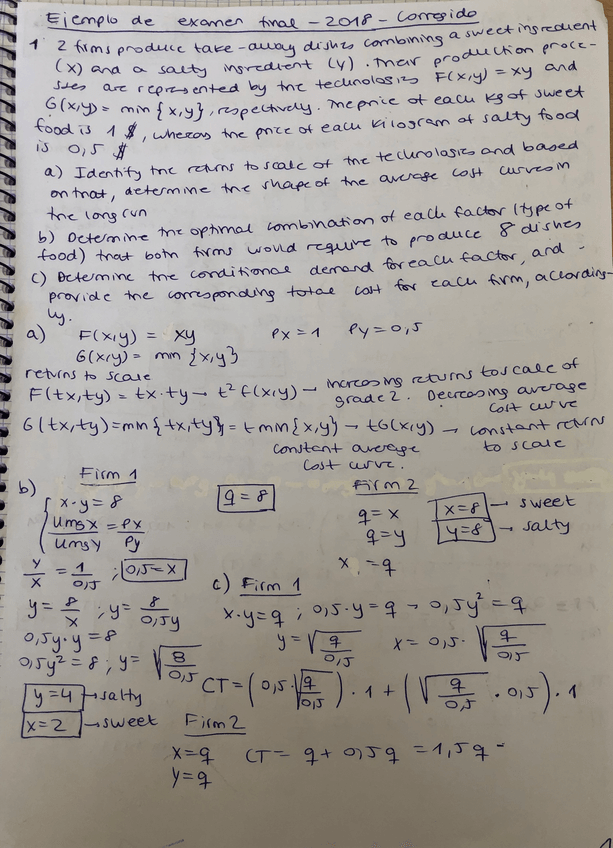 Ejemplo de examen final - 2018 - Corregido
1 2 firms produce take-away dishes combining a sweet ingredient
(x) and a salty ingredient (y). Their production proce-
sses are represented by the technologies F(x,y) = xy and
G(x,y) = min {x,y}, respectively. The price of each kg of sweet
food is 1 $, whereas the price of each kilogram of salty food
is 0,5 $
a) Identify the returns to scale of the technologies and based
on that, determine the shape of the average cost curves in
the long run
b) Determine the optimal combination of each factor (type of
food) that both firms would require to produce 8 dishes
c) Determine the conditional demand for each factor, and -
provide the corresponding total cost for each firm, according-
ly.
a) F(x,y) = xy Px = 1 Py = 0,5
G(x,y) = min {x,y}
returns to scale
F(tx,ty) = tx·ty → t² f(x,y) → increasing returns to scale of
grade 2. Decreasing average
cost curve
G(tx,ty) = min{tx,ty} = t min{x,y} → tG(x,y) → constant returns
to scale
constant average
cost curve.
b) Firm 1
q = 8
x·y = 8
UmgX/UmgY = Px/Py
y/x = 1/0,5 ; 0,5 = x
y = 8/x ; y = 8/0,5y
0,5y·y = 8
0,5y² = 8 ; y = √8/0,5
y = 4 → salty
x = 2 → sweet
Firm 2
q = x x = 8 → sweet
q = y y = 8 → salty
x = q
c) Firm 1
x·y = q ; 0,5·y = q → 0,5y² = q
y = √q/0,5 x = 0,5·√q/0,5
CT = (0,5·√q/0,5)·1 + (√q/0,5·0,5)·1
Firm 2
x = q CT = q + 0,5q = 1,5q -
y = q